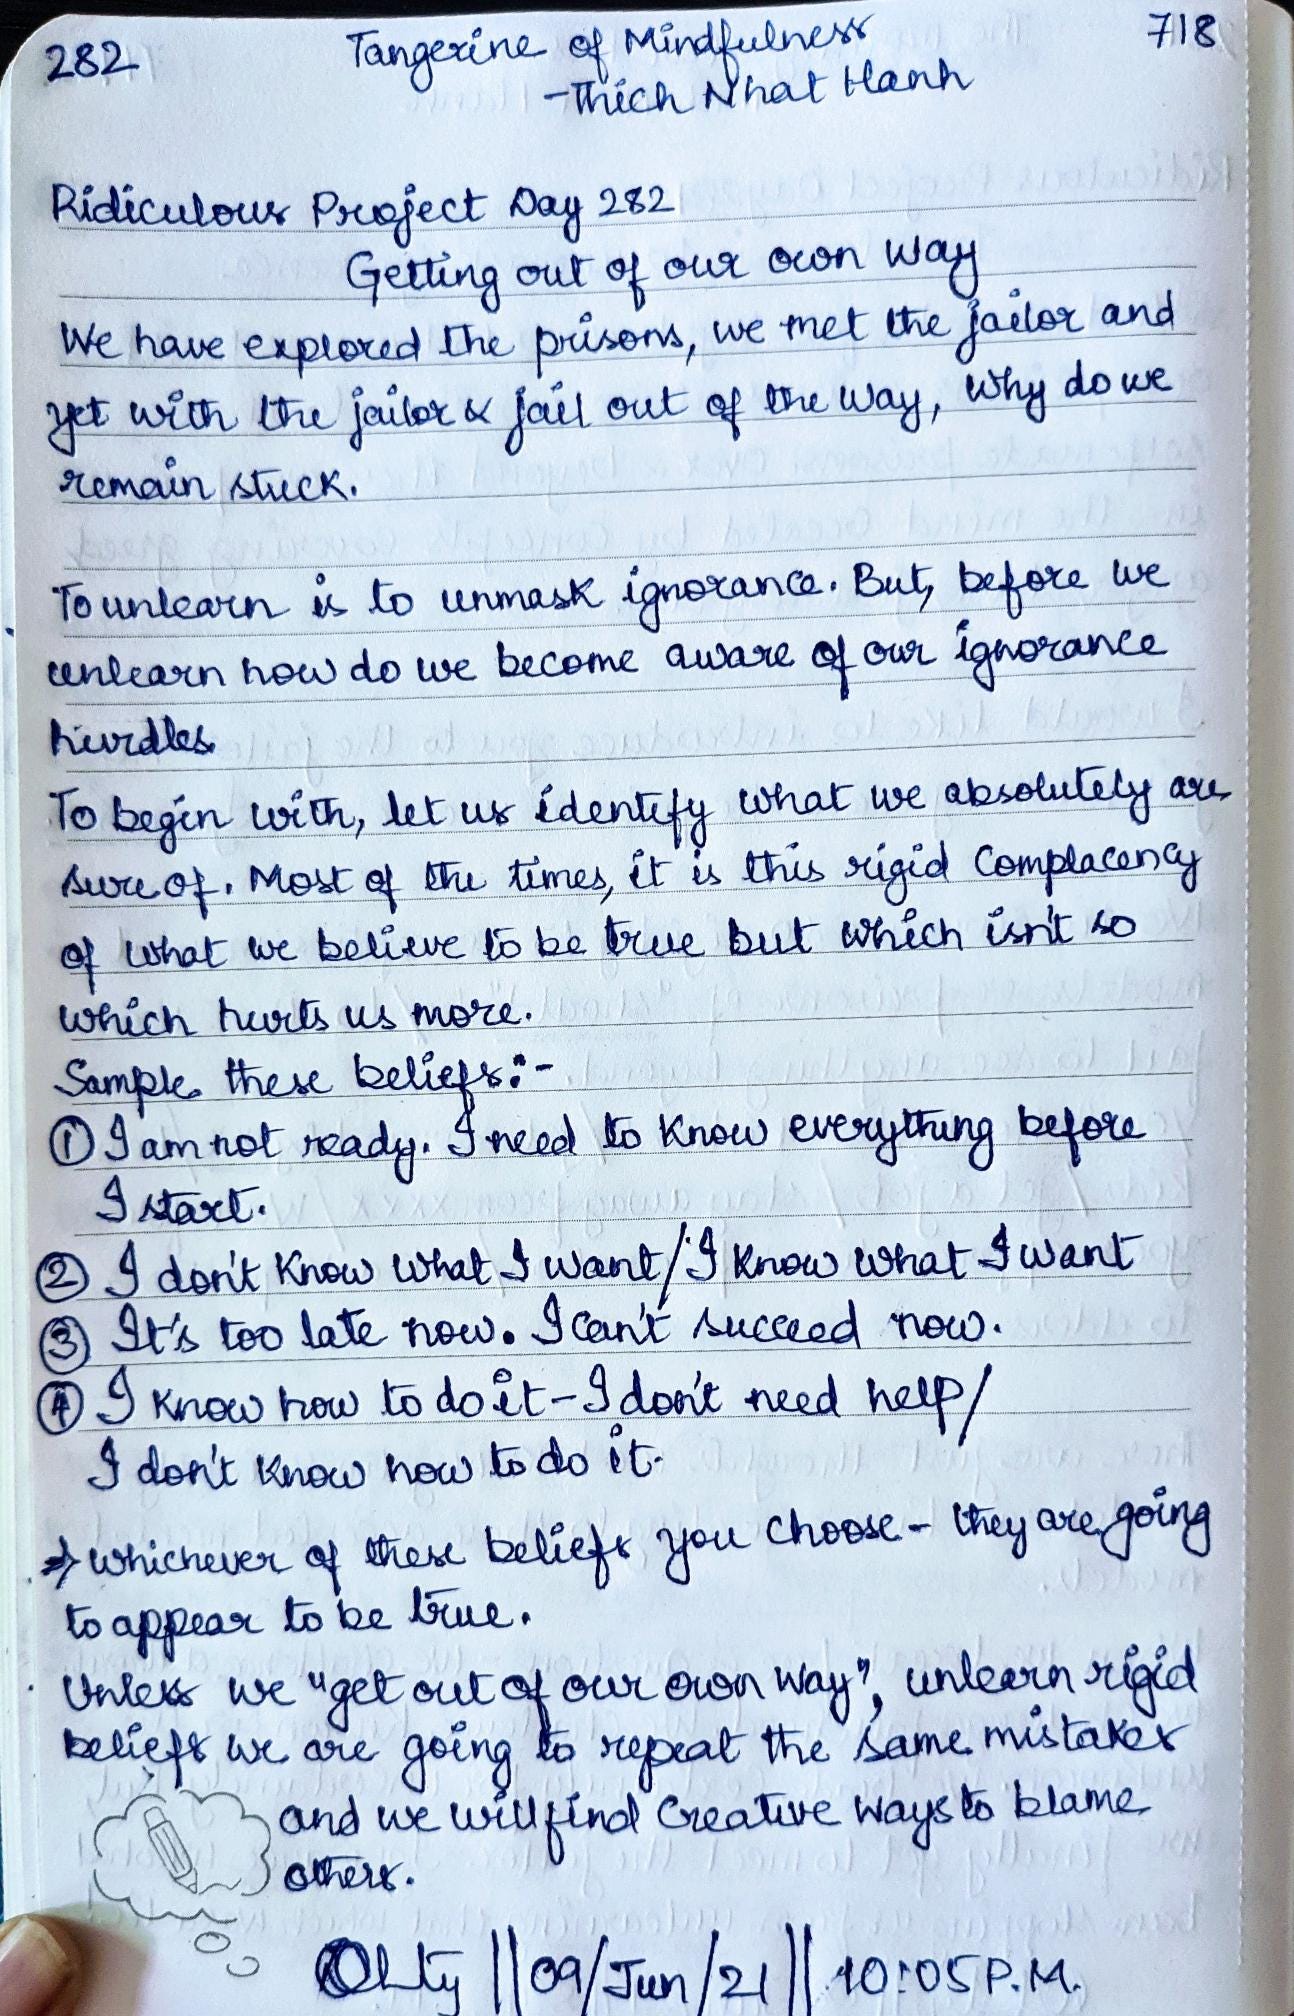 282
Tangerine of Mindfulness
718
-Thich Nhat Hanh
Ridiculous Project Day 282
Getting out of our own way
We have explored the prisons, we met the jailor and
yet with the jailor & jail out of the way, why do we
remain stuck.
To unlearn is to unmask ignorance. But, before we
unlearn how do we become aware of our ignorance
hurdles
To begin with, let us identify what we absolutely are
sure of. Most of the times, it is this rigid complacency
of what we believe to be true but which isn't so
which hurts us more.
Sample these beliefs:-
① I am not ready. I need to know everything before
I start.
② I don't know what I want/I know what I want
③ It's too late now. I can't succeed now.
④ I know how to do it - I don't need help/
I don't know how to do it.
⇒ whichever of these beliefs you choose - they are going
to appear to be true.
Unless we "get out of our own way", unlearn rigid
beliefs we are going to repeat the same mistakes
and we will find creative ways to blame
others.
||09/Jun/21|| 10:05 P.M.